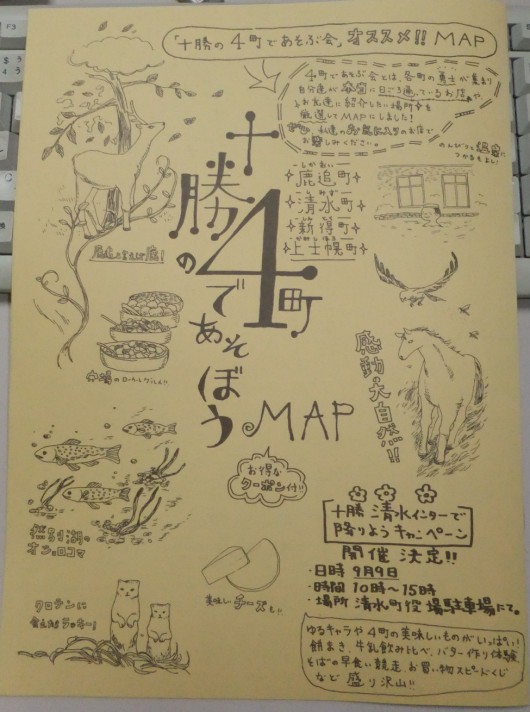 「十勝の4町であそぶ会」オススメ!! MAP
4町であそぶ会とは、各町の勇士が集まり
自分達が本当に日ごろ通っているお店や
お友達に紹介したい場所を
厳選してMAPにしました!
私達のお気に入りのお店で
お楽しみください。
のんびりと温泉に
つかるもよし!
十勝の4町であそぼう MAP
しかおい
鹿追町
しみず
清水町
しんとく
新得町
かみしほろ
上士幌町
鹿追と言えば鹿!
感動大自然!!
お得な
クーポン付!!
然別湖の
オショロコマ
美味しいチーズも!!
クロテンに
会えればラッキー!
十勝清水インターで
降りようキャンペーン
開催決定!!
・日時 9月9日
・時間 10時~15時
・場所 清水町役場駐車場にて。
ゆるキャラや4町の美味しいものがいっぱい!
餅まき、牛乳飲み比べ、バター作り体験
そばの早食い競走、お買い物スピードくじ
など盛り沢山!!